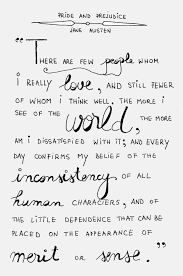 PRIDE AND PREJUDICE
JANE AUSTEN
"THERE ARE FEW people WHOM
I REALLY love, AND STILL FEWER
OF WHOM I THINK WELL. THE MORE I
SEE OF THE world, THE MORE
AM I DISSATISFIED WITH IT; AND EVERY
DAY CONFIRMS MY BELIEF OF THE
inconsistency OF ALL
human CHARACTERS, AND OF
THE LITTLE DEPENDENCE THAT CAN BE
PLACED ON THE APPEARANCE OF
merit OR sense."